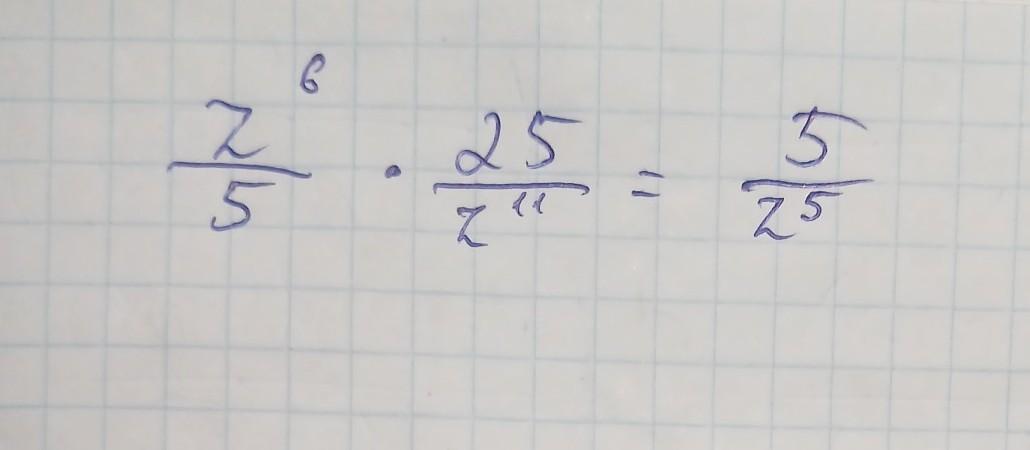 z^6/5 · 25/z^11 = 5/z^5